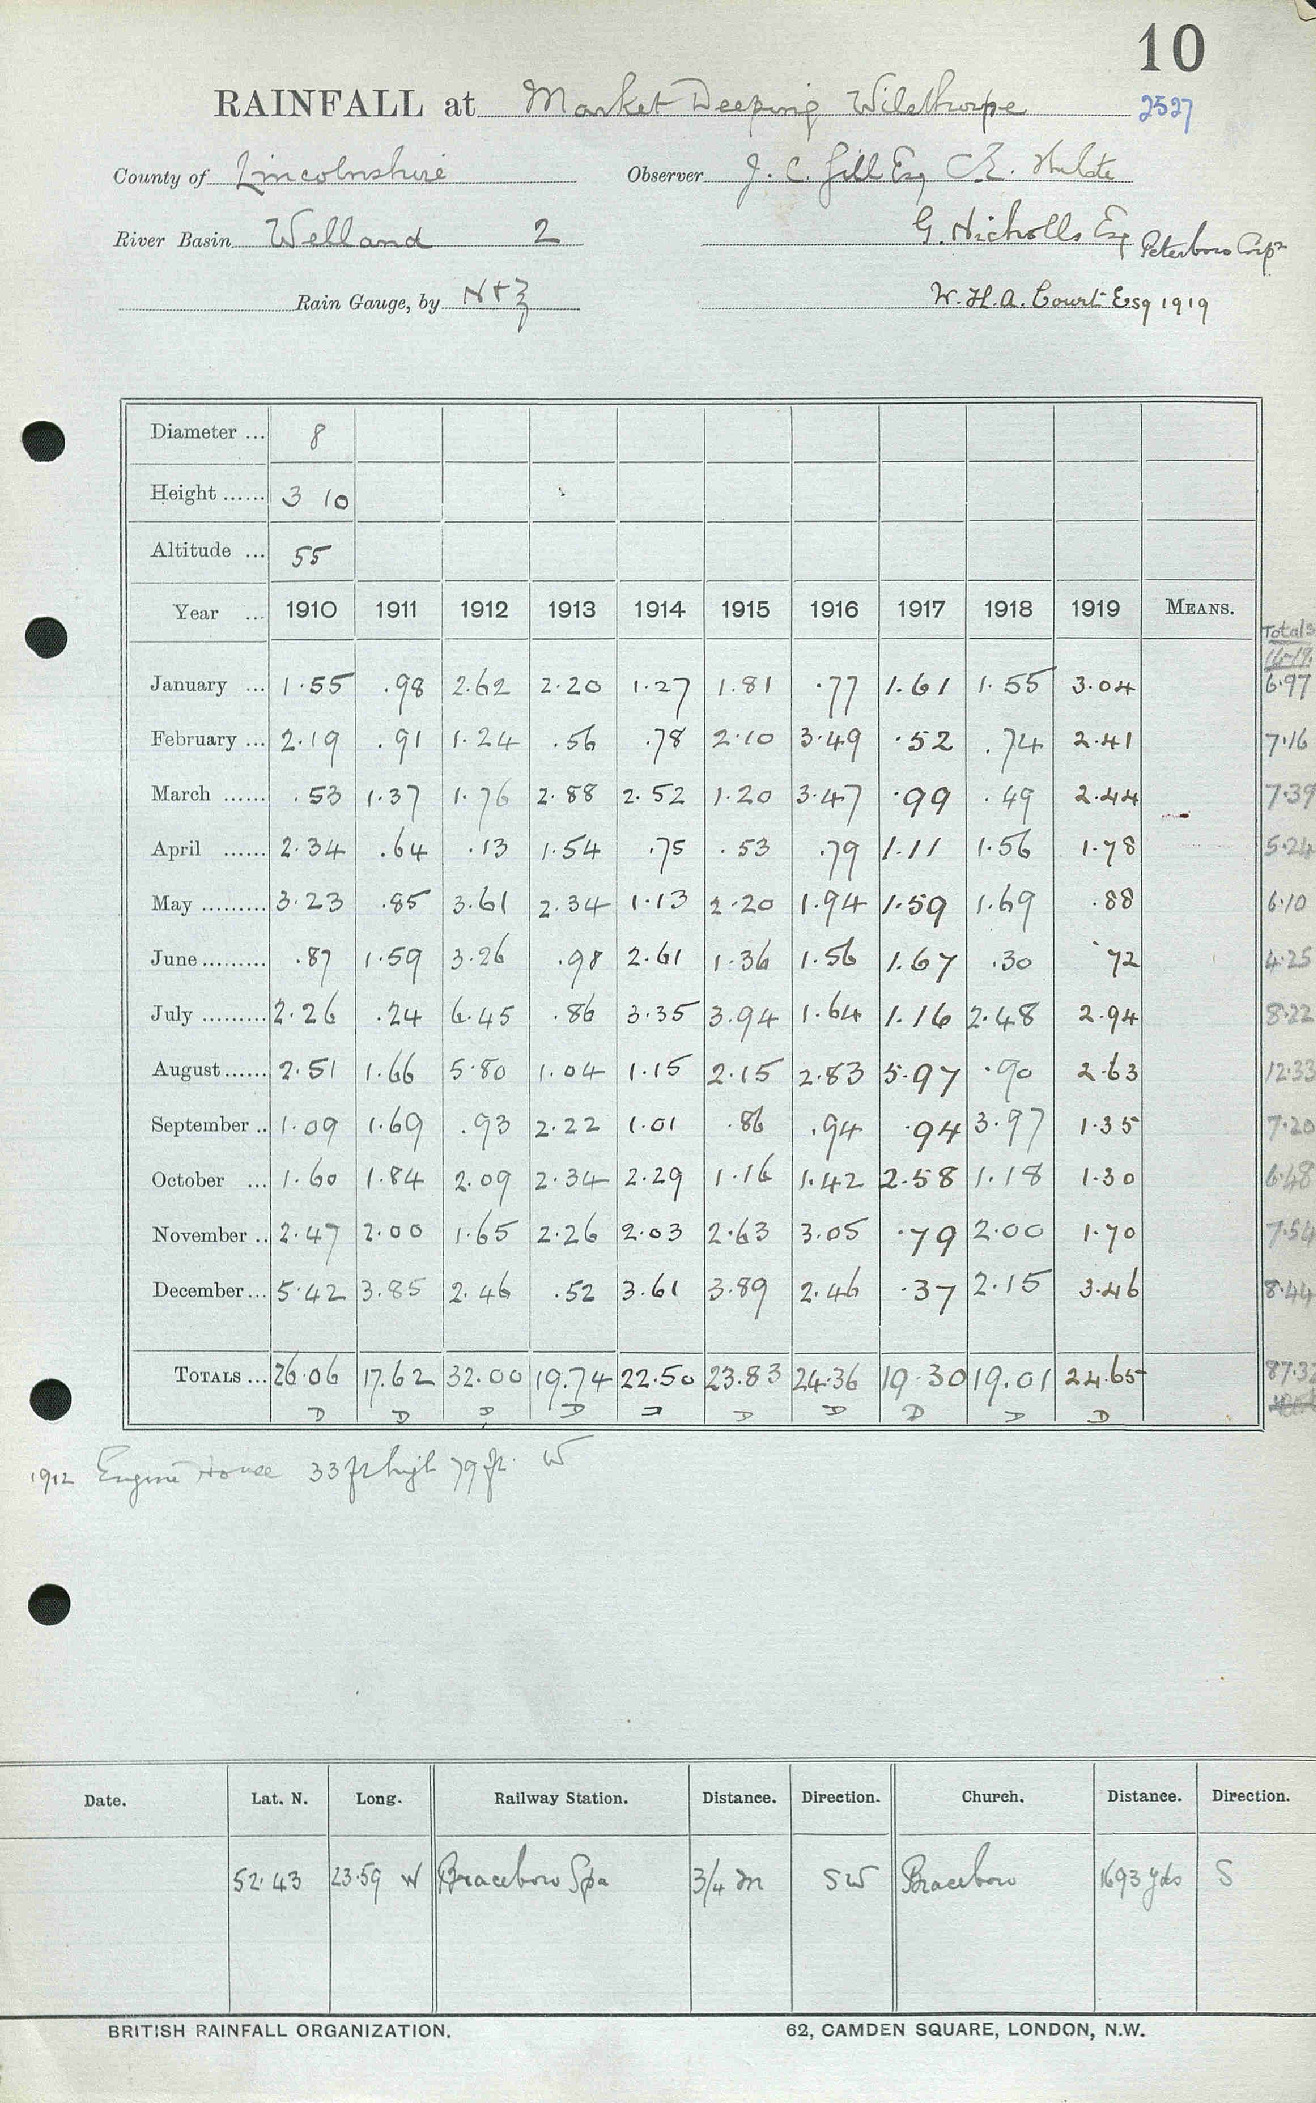 10
RAINFALL at Market Deeping Wilsthorpe 2527
County of Lincolnshire Observer J. C. Gill Esq C.E.
River Basin Welland 2 G. Nicholls Esq Peterboro Corpn
Rain Gauge, by N & Z W. H. A. Court Esq 1919
Diameter ... 8
Height ...... 3 10
Altitude ... 55
Year ... 1910 1911 1912 1913 1914 1915 1916 1917 1918 1919 MEANS. Totals 16-19
January ... 1.55 .98 2.62 2.20 1.27 1.81 .77 1.61 1.55 3.04 6.97
February ... 2.19 .91 1.24 .56 .78 2.10 3.49 .52 .74 2.41 7.16
March ...... .53 1.37 1.76 2.88 2.52 1.20 3.47 .99 .49 2.44 7.39
April ...... 2.34 .64 .13 1.54 .75 .53 .79 1.11 1.56 1.78 5.24
May ......... 3.23 .85 3.61 2.34 1.13 2.20 1.94 1.59 1.69 .88 6.10
June ......... .87 1.59 3.26 .98 2.61 1.36 1.56 1.67 .30 .72 4.25
July ......... 2.26 .24 6.45 .86 3.35 3.94 1.64 1.16 2.48 2.94 8.22
August ...... 2.51 1.66 5.80 1.04 1.15 2.15 2.83 5.97 .90 2.63 12.33
September .. 1.09 1.69 .93 2.22 1.01 .86 .94 .94 3.97 1.35 7.20
October ... 1.60 1.84 2.09 2.34 2.29 1.16 1.42 2.58 1.18 1.30 6.48
November .. 2.47 2.00 1.65 2.26 2.03 2.63 3.05 .79 2.00 1.70 7.54
December ... 5.42 3.85 2.46 .52 3.61 3.89 2.46 .37 2.15 3.46 8.44
TOTALS ... 26.06 17.62 32.00 19.74 22.50 23.83 24.36 19.30 19.01 24.65 87.32
D D D D D D D D D D
1912 Engine House 33 ft high 79 ft. W
Date. Lat. N. Long. Railway Station. Distance. Direction. Church. Distance. Direction.
52.43 23.59 W Braceboro Spa 3/4 m SW Braceboro 1693 yds S
BRITISH RAINFALL ORGANIZATION. 62, CAMDEN SQUARE, LONDON, N.W.